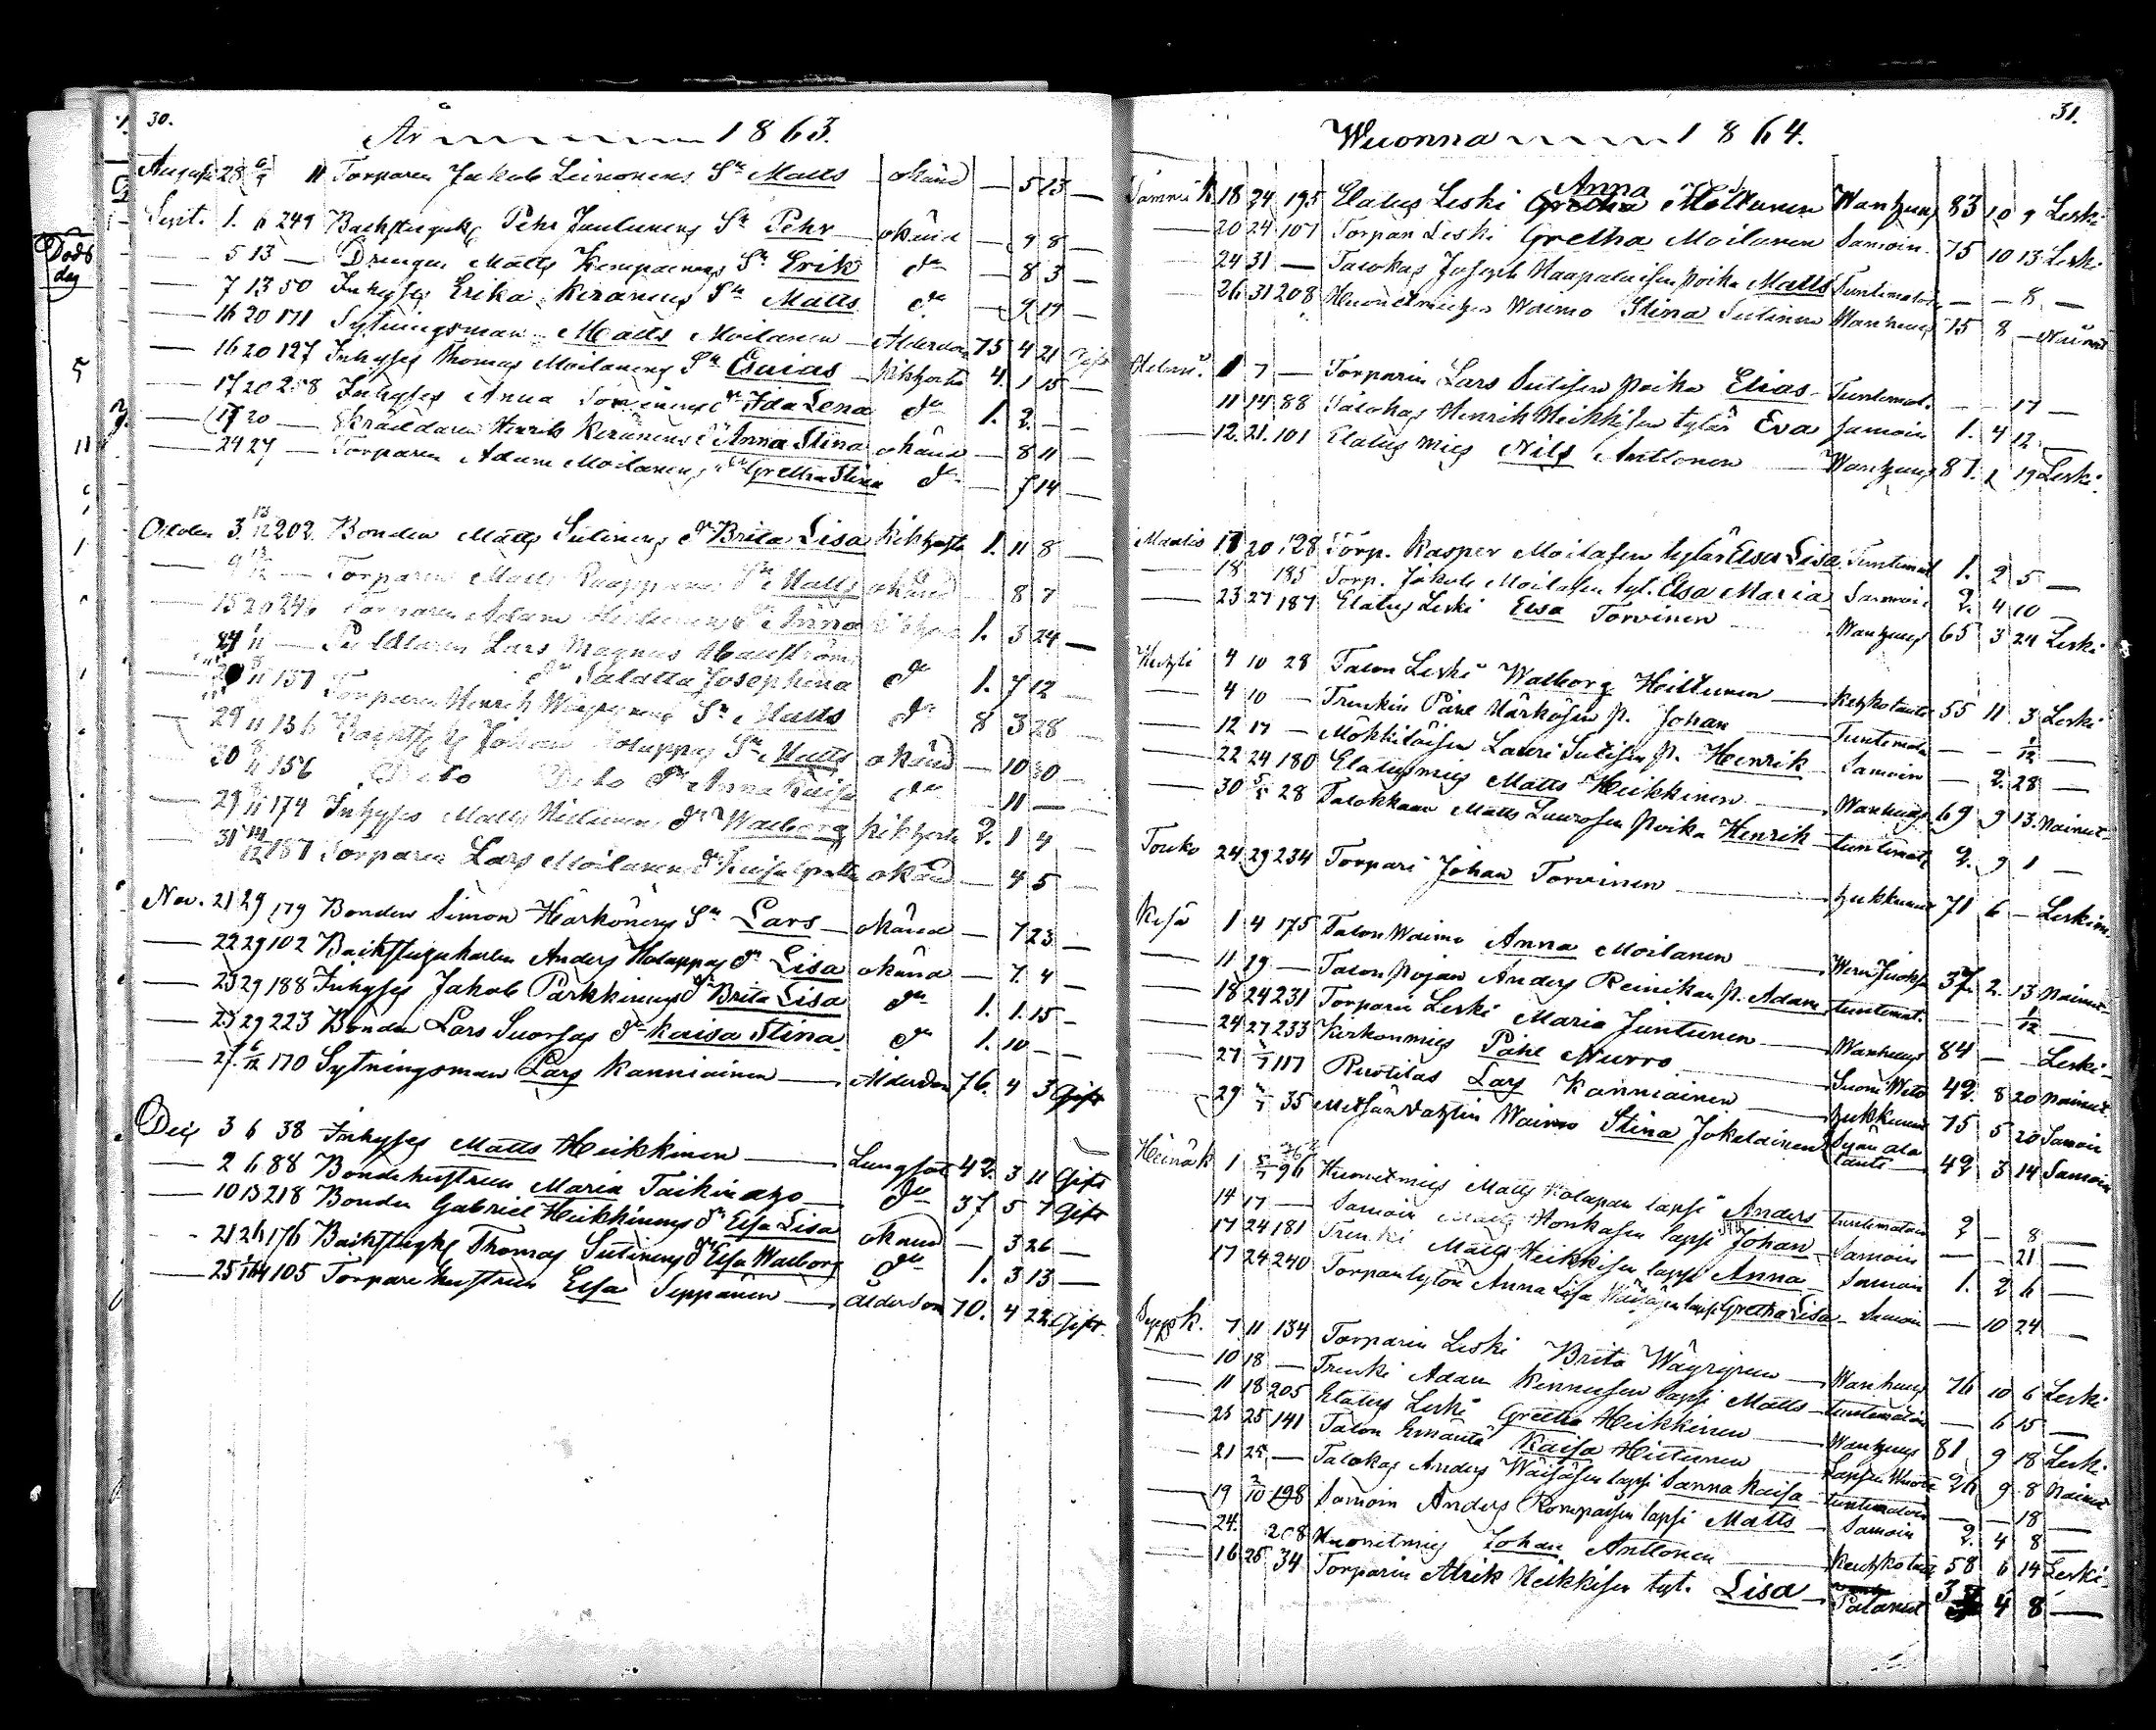 30.
År 1863.
August 28 6/9 11 Torparen Jakob Leinonens Sn Matts okänd — 5 23 —
Sept. 1. 6 249 Backstugukg Pehr Juntunens Sn Pehr okänd — 9 8 —
— 5 13 — Drengen Matts Kemppainens Sn Erik do — 8 3 —
— 7 13 50 Inhyses Erika Keränens Sn Matts do — 9 19 —
— 16 20 171 Sytningsman Matts Moilanen Ålderdom 75 4 21 Gift
— 16 20 127 Inhyses Thomas Moilanens Sn Esaias kikhosta 4. 1 15 —
— 17 20 258 Inhyses Anna Torvinens dr Ida Lena do 1. 2. — —
— 17 20 — Skräddaren Henrik Keränens dr Anna Stina okänd — 8 11 —
— 24 27 — Torparen Adam Moilanens dr Gretha Stina do — 7 14 —
October 3. 13/12 202. Bonden Matts Sutinens dr Brita Lisa kikhosta 1. 11 8 —
— 9 13/12 — Torparen Matts Sn Matts okänd — 8 7 —
— 15 20 246 Torparen Adam dr Anna 1. 3 24 —
24 11 — Lars Magnus
dr Salatta Josephina do 1. 7 12 —
11 137 Torparen Henrik Sn Matts do 8 3 28 —
29 11 136 Johan Holappas Sn Matts okänd — 10 30 —
30 11 156 Dito Dito dr Anna Kaisa do — 11 —
— 29 11 174 Inhyses Matts dr Walborg kikhosta 2. 1 4 —
— 31 14/12 187 Torparen Lars Moilanens dr okänd — 4 5 —
Nov. 21 29 179 Bonden Simon Härkönens Sn Lars okänd — 7 23 —
— 22 29 102 Backstugukarlen Anders Holappas dr Lisa okänd — 7. 4 —
— 23 29 188 Inhyses Jakob Parkkinens dr Brita Lisa do 1. 1. 15 —
— 25 29 223 Bonden Lars Suorsas dr Kaisa Stina do 1. 10 — —
— 27. 6/12 170 Sytningsman Lars Kanniainen Ålderdom 76. 4 3 Gift
Dec 3 6 38 Inhyses Matts Heikkinen Lungsot 42. 3 11 Gift
— 2 6 88 Bondehustrun Maria Taikinaho do 37 5 7 Gift
— 10 13 218 Bonden Gabriel Heikkinens dr Elsa Lisa okänd — 3 26 —
— 21 26 176 Backstugkg Thomas Sutinens dr Elsa Walborg do 1. 3 13 —
— 25 105 Torpare hustrun Elsa Seppänen Ålderdom 70. 4 22 Gift
31.
Wuonna 1864.
Tammi k. 18 24 195 Elatus Leski Anna Gretha Möttönen Wanhuus 83 10 9 Leski
— 20 24 107 Torpan Leski Gretha Moilanen Samoin 75 10 13 Leski
— 24 31 — Talokas Joseph Haapalaisen poika Matts Tuntematoin — — 8 —
— 26 31 208 Huonetmiehen Waimo Stina Sutinen Wanhuus 75 8 — Nainut
Helmi. 1 7 — Torparin Lars Sutisen poika Elias Tuntemat. — — 17 —
— 11 14 88 Talokas Henrik Heikkisen tytär Eva Samoin 1. 4 12 —
— 12. 21. 101 Elatus mies Nils Anttonen Wanhuus 87. 2 19 Leski.
Maalis 17 20 128 Torp. Kasper Moilasen tytär Elsa Lisa Tuntemat 1. 2 5 —
— 18 185 Torp. Jakob Moilasen tyt. Elsa Maria Samoin 2. 4 10 —
— 23 27 187 Elatus Leski Ewa Torvinen Wanhuus 65 3 24 Leski
Huhti 4 10 28 Talon Leski Walborg Heittunen Keuhkotauti 55 11 3 Leski
— 4 10 — Trenkin Påhl Härkösen p. Johan Tuntemato — — 1/12 —
— 12 17 — Mökkiläisen Lauri Sutisen p. Henrik Samoin — 2. 28 —
— 22 24 180 Elatusmies Matts Heikkinen Wanhuus 69 9 13. Nainut
— 30 5/5 28 Talokkaan Matts Laurosen poika Henrik tuntemat 2. 9 1 —
Touko 24 29 234 Torpari Johan Torvinen hukkunut 71 6 — Leskim.
Kesä 1 4 175 Talon Waimo Anna Moilanen Weri juoksu 37. 2. 13 Nainut
— 11 19 — Talon pojan Anders Reinikan p. Adam tuntemat. — — 1/12 —
— 18 24 231 Torparin Leski Maria Juntunen Wanhuus 84 — — Leski
— 24 27 233 Kirkonmies Påhl Nurro Suoni Weto 42. 8 20 Nainut
— 27 117 Ruotilas Lars Kanniainen hukkunut 75 5 20 Samoin
— 29 35 Metsänvahtin Waimo Stina Jokelainen Sydän ala tauti 42 3 14 Samoin
Heinä k 1 96 Huonetmies Matts Holapan lapsi Anders tuntematoin 2 — 8 —
— 14 17 — Samoin Matts Honkasen lapsi Johan Samoin — — 21 —
— 17 24 181 Trenki Matts Heikkisen lapsi Anna Samoin 1. 2 6 —
— 17 24 240 Torpantytön Anna Lisa Wäisäsen lapsi Gretha Lisa Samoin — 10 24 —
Syysk. 7 11 134 Torparin Leski Brita Wäyrynen Wanhuus 76 10 6 Leski
— 10 18 — Trenki Adam Kinnusen lapsi Matts tuntematoin — 6 15 —
— 11 18 205 Elatus Leski Gretha Heikkinen Wanhuus 81 9 18 Leski
— 23 25 141 Talon Emäntä Kaisa Hiltunen Lapsen Wuode 26 9 8 Nainut
— 21 25 — Talokas Anders Wäisäsen lapsi Sanna Kaisa tuntematoin — — 18 —
— 19 2/10 198 Samoin Anders Romppaisen lapsi Matts Samoin 2. 4 8 —
— 24. 208 Huonetmies Johan Anttonen Keuhkotauti 58 6 14 Leski
— 16 25 34 Torparin Alrik Heikkisen tyt. Lisa Palanut 3 4 8 —
Döds
dag